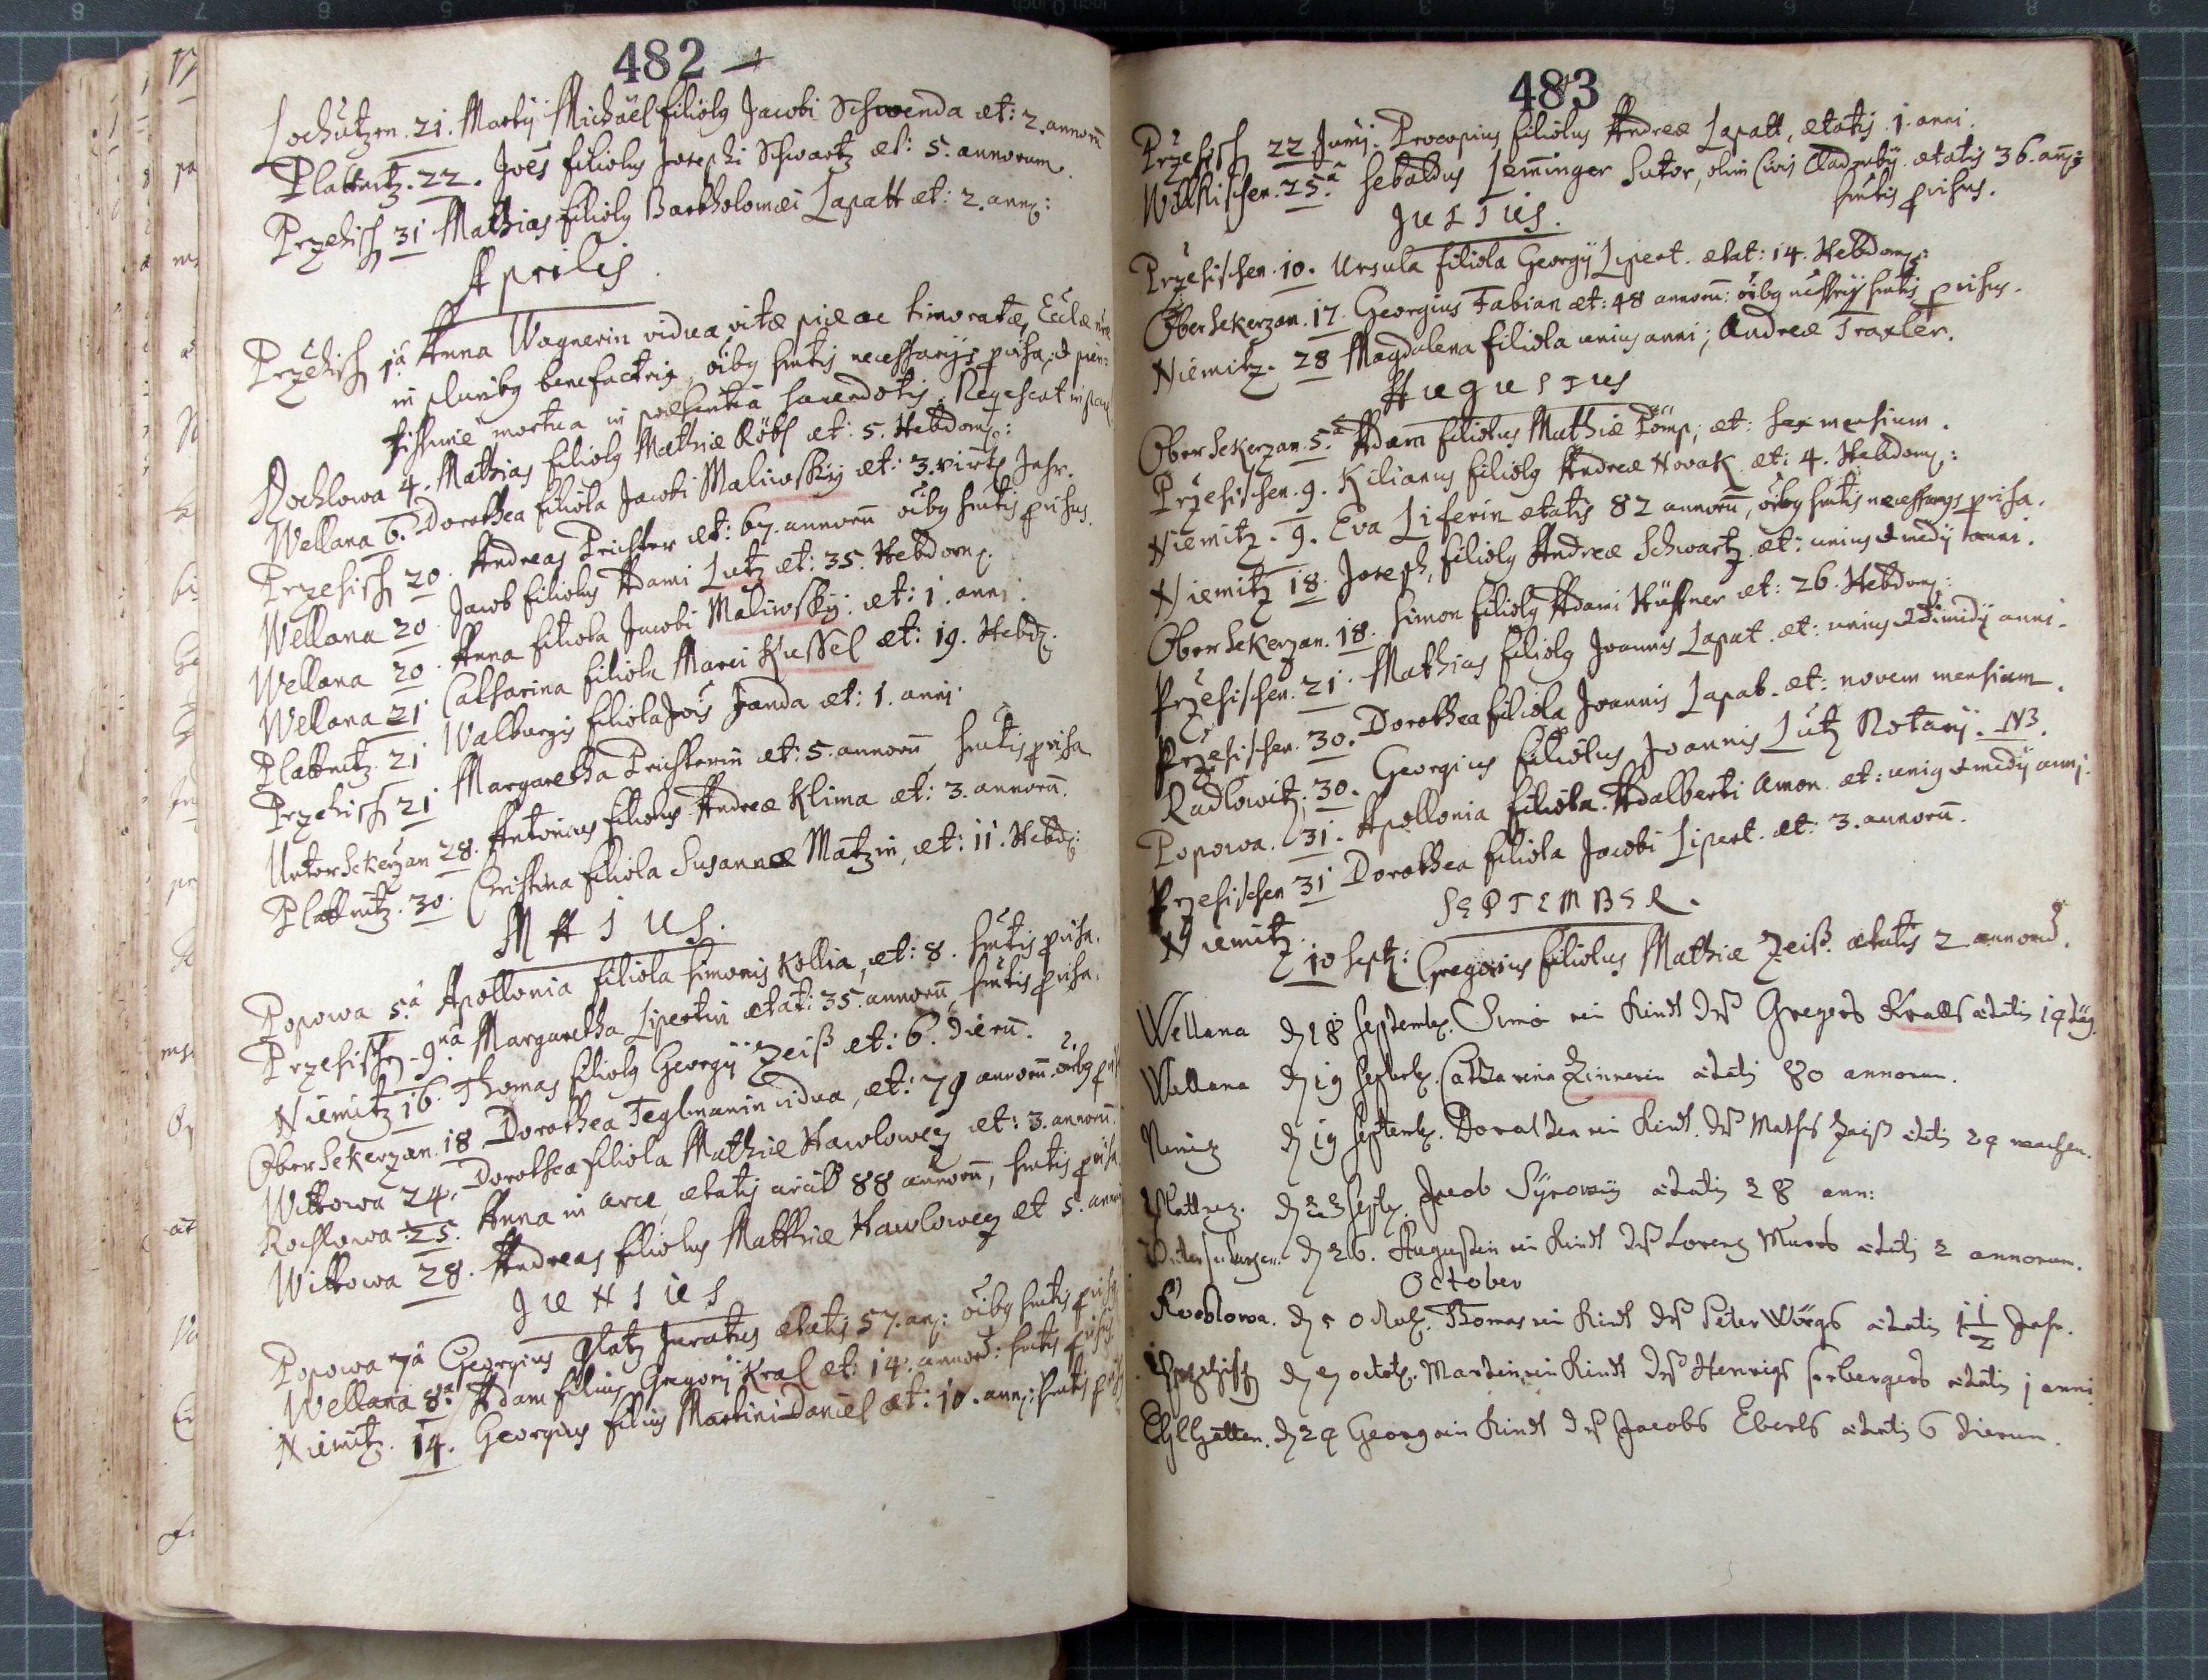 482
Lochutzen. 21. Martij Michaël filiolg Jacobi Schwenda æt: 2. annorũ
Plattnitz. 22. Joẽs filiolus Josephi Schwartz æt: 5. annorum.
Przehisch 31 Mathias filiolg Bartholomæi Lapatt æt: 2. ann:
Aprilis.
Przehisch 1â Anna Wagnerin vidua, vitæ piæ ac timoratæ, Ecclæ
in pluribg benefactrix, oibg smtis necessarijs pvisa, et
mortua in præsentia sacerdotis. Reqescat in pace
Rochlowa 4. Mathias filiolg Mathiæ Röbl æt: 5. Hebdom:
Wellana 6. Dorothea filiola Jacobi Maliwskÿ æt: 3. virtl Jahr.
Przehisch 20. Andreas Prichter æt: 67. annorũ oibg smtis pvisus.
Wellana 20. Jacob filiolus Adami Lutz æt: 35. Hebdom.
Wellana 20. Anna filiola Jacobi Maliwskÿ. æt: 1. anni.
Wellana 21 Catharina filiola Marci Kussel æt: 19. Hebd.
Plattnitz. 21 Walburgis filiola Jois Janda æt: 1. anni.
Przehisch 21 Margaretha Prichterin æt: 5. annorũ smtis pvisa
Unter Sekerzan 28. Antonius filiolus Andreæ Klima æt: 3. annorũ.
Plattnitz. 30. Christina filiola Susannæ Matzin, æt: 11. Hebd:
MAIUS.
Popowa 5.â Apollonia filiola Simonis Kollia, æt: 8. smtis pvisa.
Przehisch. 9nâ Margaretha Lipertin ætat: 35. annorũ, smtis pvisa.
Niemitz 16. Thomas filiolg Georgÿ Zeiß æt: 6. dierũ.
Ober Sekerzan. 18 Dorothea Teglmanin vidua, æt: 79 annorũ. oibg
Wittowa 24. Dorothea filiola Mathiæ Hawloweg æt: 3. annorũ.
Rochlowa 25. Anna in arce ætatis 88 annorũ, smtis pvisa
Wittowa 28. Andreas filiolus Matthiæ Hawloweg æt 5. ann
JUNIUS
Popowa 7â Georgius Glatz Juratus ætatis 57. an: oibg smtis
Wellana 8â Adam filius Gregorij Kral æt: 14. annor: smtis
Niemitz. 14. Georgius filius Martini Daniel æt: 10. ann: smtis
483
Przehisch 22 Junij. Procopius filiolus Andreæ Lapatt, ætatis 1. anni.
Wilkischen. 25.â Sebaldus Leminger Sutor, olim Civis Cladrubÿ ætatis 36. an:
smtis pvisus.
JULIUS.
Przehischen. 10. Ursula filiola Georgÿ Lipert. ætat: 14. Hebdom:
Ober Sekerzan. 17. Georgius Fabian æt: 48 annorũ: oibg necssrijs smtis pvisus.
Niemitz. 28 Magdalena filiola unius anni, Andreæ Traxler.
AUGUSTUS
Ober Sekerzan. 5.â Adam filiolus Mathiæ Pömp; æt: Sex mensium.
Przehischen. 9. Kilianus filiolg Andreæ Novak æt: 4. Hebdom:
Niemitz. 9. Eva Liferin ætatis 82 annorũ, oibg smtis necessarijs pvisa.
Niemitz 18. Joseph, filiolg Andreæ Schwartz. æt: unius et medij anni.
Ober Sekerzan. 18. Simon filiolg Adami Hüffner æt: 26. Hebdom:
Przehischen. 21. Mathias filiolg Joannis Lapat. æt: unius et dimidij anni.
Przehischen. 30. Dorothea filiola Joannis Lapab. æt: novem mensium.
Radlowitz. 30. Georgius filiolus Joannis Lutz Notarij. NB.
Popowa. 31. Apollonia filiola Adalberti Amon. æt: unig et medij anni.
Przehischen 31 Dorothea filiola Jacobi Lipert. æt: 3. annorũ.
SEPTEMBER.
Niemitz. 10 Sept: Gregorius filiolus Mathiæ Zeiß. ætatis 2 annor.
Wellana d 18 Septemb. Simo ein Kindt deß Gregers Kralls ætatis 14 täg.
Wellana d 19 Septemb. Catharina Zinnerin ætatis 80 annorum.
Nimitz d 19 Septemb. Dorathea ein Kindt deß Mathes Zeiß ætatis 24 wochen.
Plattnez. d 23 Septb. Jacob Syrowy ætatis 28 ann:
d 26. Augustin ein Kindt deß Lorentz Murrs ætatis 2 annorum.
October
Rochlowa. d 5 Octob. Thomas ein Kindt deß Peter Würgs ætatis 1 1/2 Jahr.
Przehisch d 9 octob. Martin ein Kindt deß Henrigs ætatis 1 anni
d 24 Georg ein Kindt deß Jacobs Eberls ætatis 6 dierum.